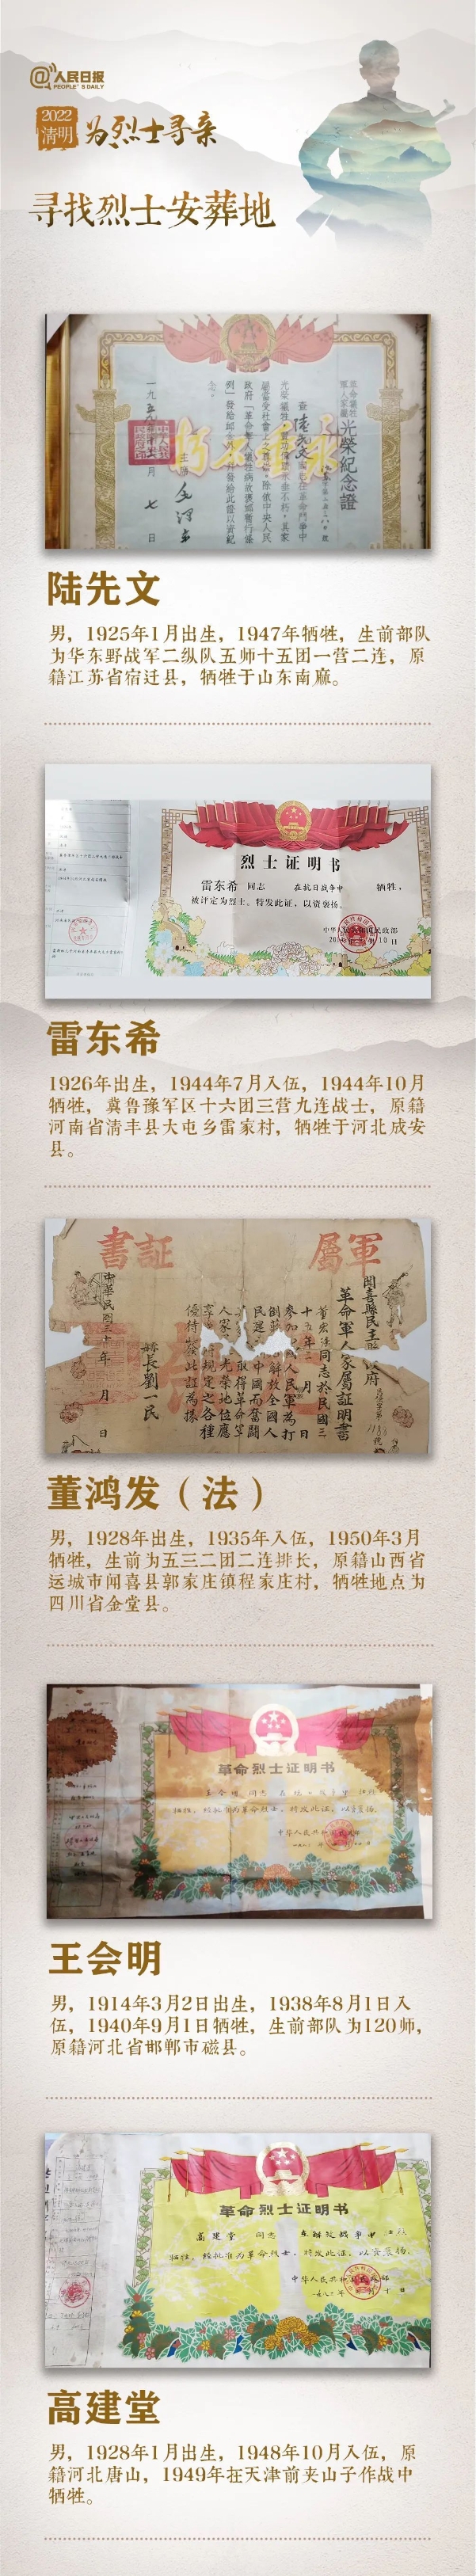 @人民日报
PEOPLE'S DAILY
2022
清明
为烈士寻亲
寻找烈士安葬地
革命牺牲
军人家属
光荣纪念證
陆先文
男，1925年1月出生，1947年牺牲，生前部队
为华东野战军二纵队五师十五团一营二连，原
籍江苏省宿迁县，牺牲于山东南麻。
烈士证明书
雷东希 同志 在抗日战争中 牺牲，
被评定为烈士。特发此证，以资褒扬。
中华人民共和国民政部
雷东希
1926年出生，1944年7月入伍，1944年10月
牺牲，冀鲁豫军区十六团三营九连战士，原籍
河南省清丰县大屯乡雷家村，牺牲于河北成安
县。
軍屬
証書
革命軍人家屬証明書
縣長劉一民
董鸿发（法）
男，1928年出生，1935年入伍，1950年3月
牺牲，生前为五三二团二连排长，原籍山西省
运城市闻喜县郭家庄镇程家庄村，牺牲地点为
四川省金堂县。
革命烈士证明书
王会明 同志
牺牲，经批准为革命烈士，特发此证，以资褒扬。
王会明
男，1914年3月2日出生，1938年8月1日入
伍，1940年9月1日牺牲，生前部队为120师，
原籍河北省邯郸市磁县。
革命烈士证明书
高建堂 同志 在解放战争中
牺牲，经批准为革命烈士，特发此证，以资褒扬。
高建堂
男，1928年1月出生，1948年10月入伍，原
籍河北唐山，1949年在天津前夹山子作战中
牺牲。